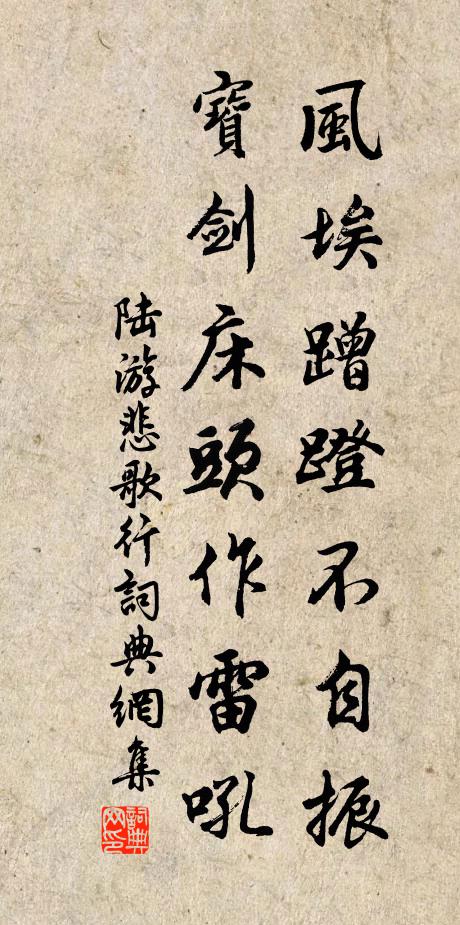 風埃蹭蹬不自振
寶劍床頭作雷吼
陸游悲歌行詞典網集
詞典
网印